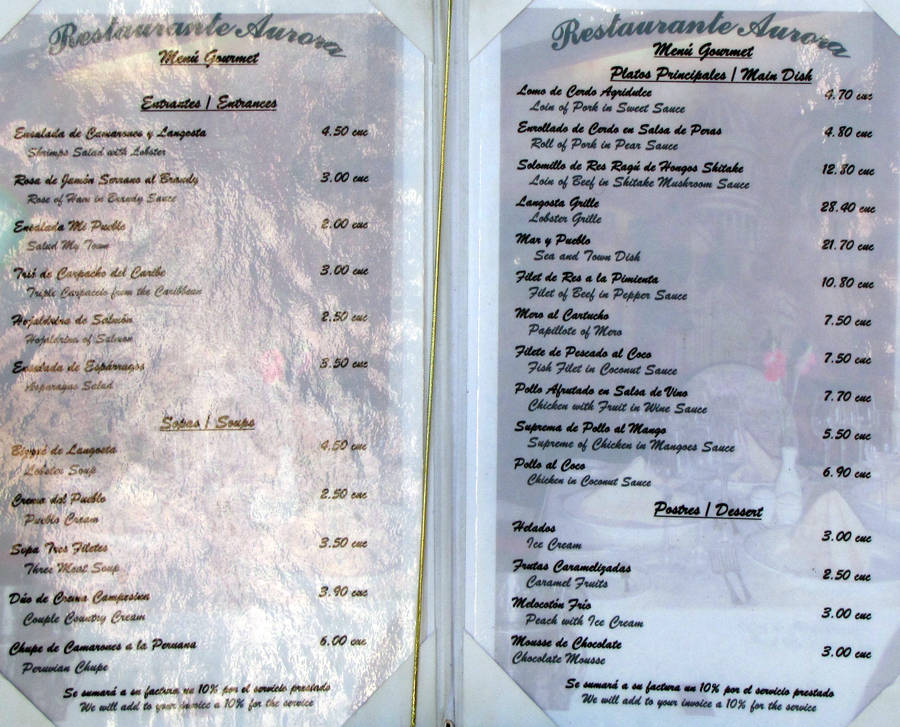 Restaurante Aurora
Menú Gourmet
Entrantes / Entrances
Ensalada de Camarones y Langosta 4.50 cuc
Shrimps Salad with Lobster
Rosa de Jamón Serrano al Brandy 3.00 cuc
Rose of Ham in Brandy Sauce
Ensalada Mi Pueblo 2.00 cuc
Salad My Town
Trió de Carpacho del Caribe 3.00 cuc
Triple Carpaccio from the Caribbean
Hojaldrina de Salmón 2.50 cuc
Hojaldrina of Salmon
Ensalada de Espárragos 3.50 cuc
Asparagus Salad
Sopas / Soups
Bisqué de Langosta 4.50 cuc
Lobster Soup
Crema del Pueblo 2.50 cuc
Pueblo Cream
Sopa Tres Filetes 3.50 cuc
Three Meat Soup
Dúo de Crema Campesina 3.90 cuc
Couple Country Cream
Chupe de Camarones a la Peruana 6.00 cuc
Peruvian Chupe
Se sumará a su factura un 10% por el servicio prestado
We will add to your invoice a 10% for the service
Restaurante Aurora
Menú Gourmet
Platos Principales / Main Dish
Lomo de Cerdo Agridulce 4.70 cuc
Loin of Pork in Sweet Sauce
Enrollado de Cerdo en Salsa de Peras 4.80 cuc
Roll of Pork in Pear Sauce
Solomillo de Res Ragú de Hongos Shitake 12.80 cuc
Loin of Beef in Shitake Mushroom Sauce
Langosta Grille 28.40 cuc
Lobster Grille
Mar y Pueblo 21.70 cuc
Sea and Town Dish
Filet de Res a la Pimienta 10.80 cuc
Filet of Beef in Pepper Sauce
Mero al Cartucho 7.50 cuc
Papillote of Mero
Filete de Pescado al Coco 7.50 cuc
Fish Filet in Coconut Sauce
Pollo Afrutado en Salsa de Vino 7.70 cuc
Chicken with Fruit in Wine Sauce
Suprema de Pollo al Mango 5.50 cuc
Supreme of Chicken in Mangoes Sauce
Pollo al Coco 6.90 cuc
Chicken in Coconut Sauce
Postres / Dessert
Helados 3.00 cuc
Ice Cream
Frutas Caramelizadas 2.50 cuc
Caramel Fruits
Melocotón Frío 3.00 cuc
Peach with Ice Cream
Mousse de Chocolate 3.00 cuc
Chocolate Mousse
Se sumará a su factura un 10% por el servicio prestado
We will add to your invoice a 10% for the service